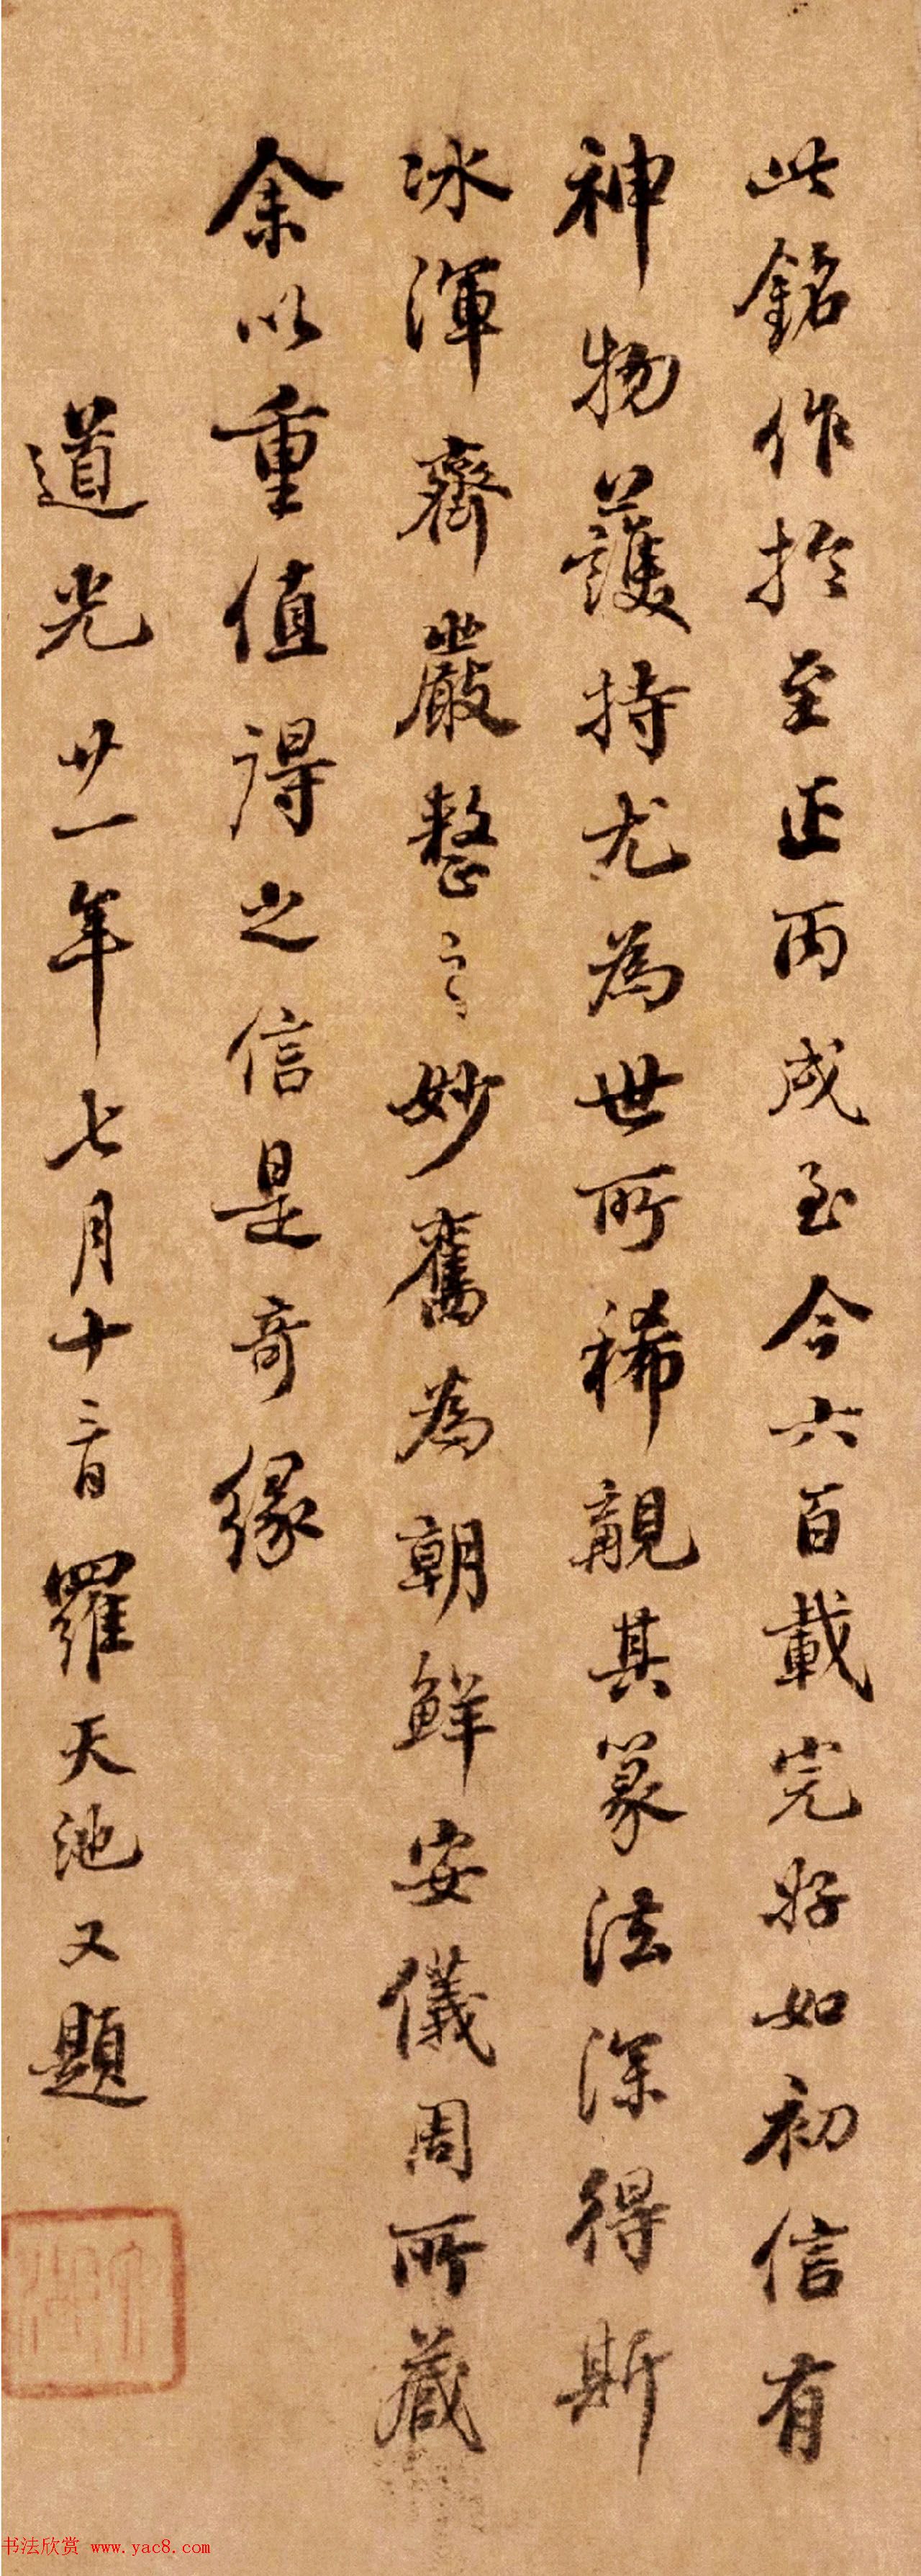 此銘作於至正丙戌至今六百載完好如初信有
神物護持尤為世所稀覯其篆法深得斯
冰渾齊嚴整之妙舊為朝鮮安儀周所藏
余以重值得之信是奇緣
道光廿一年七月十三日羅天池又題
书法欣赏 www.yac8.com